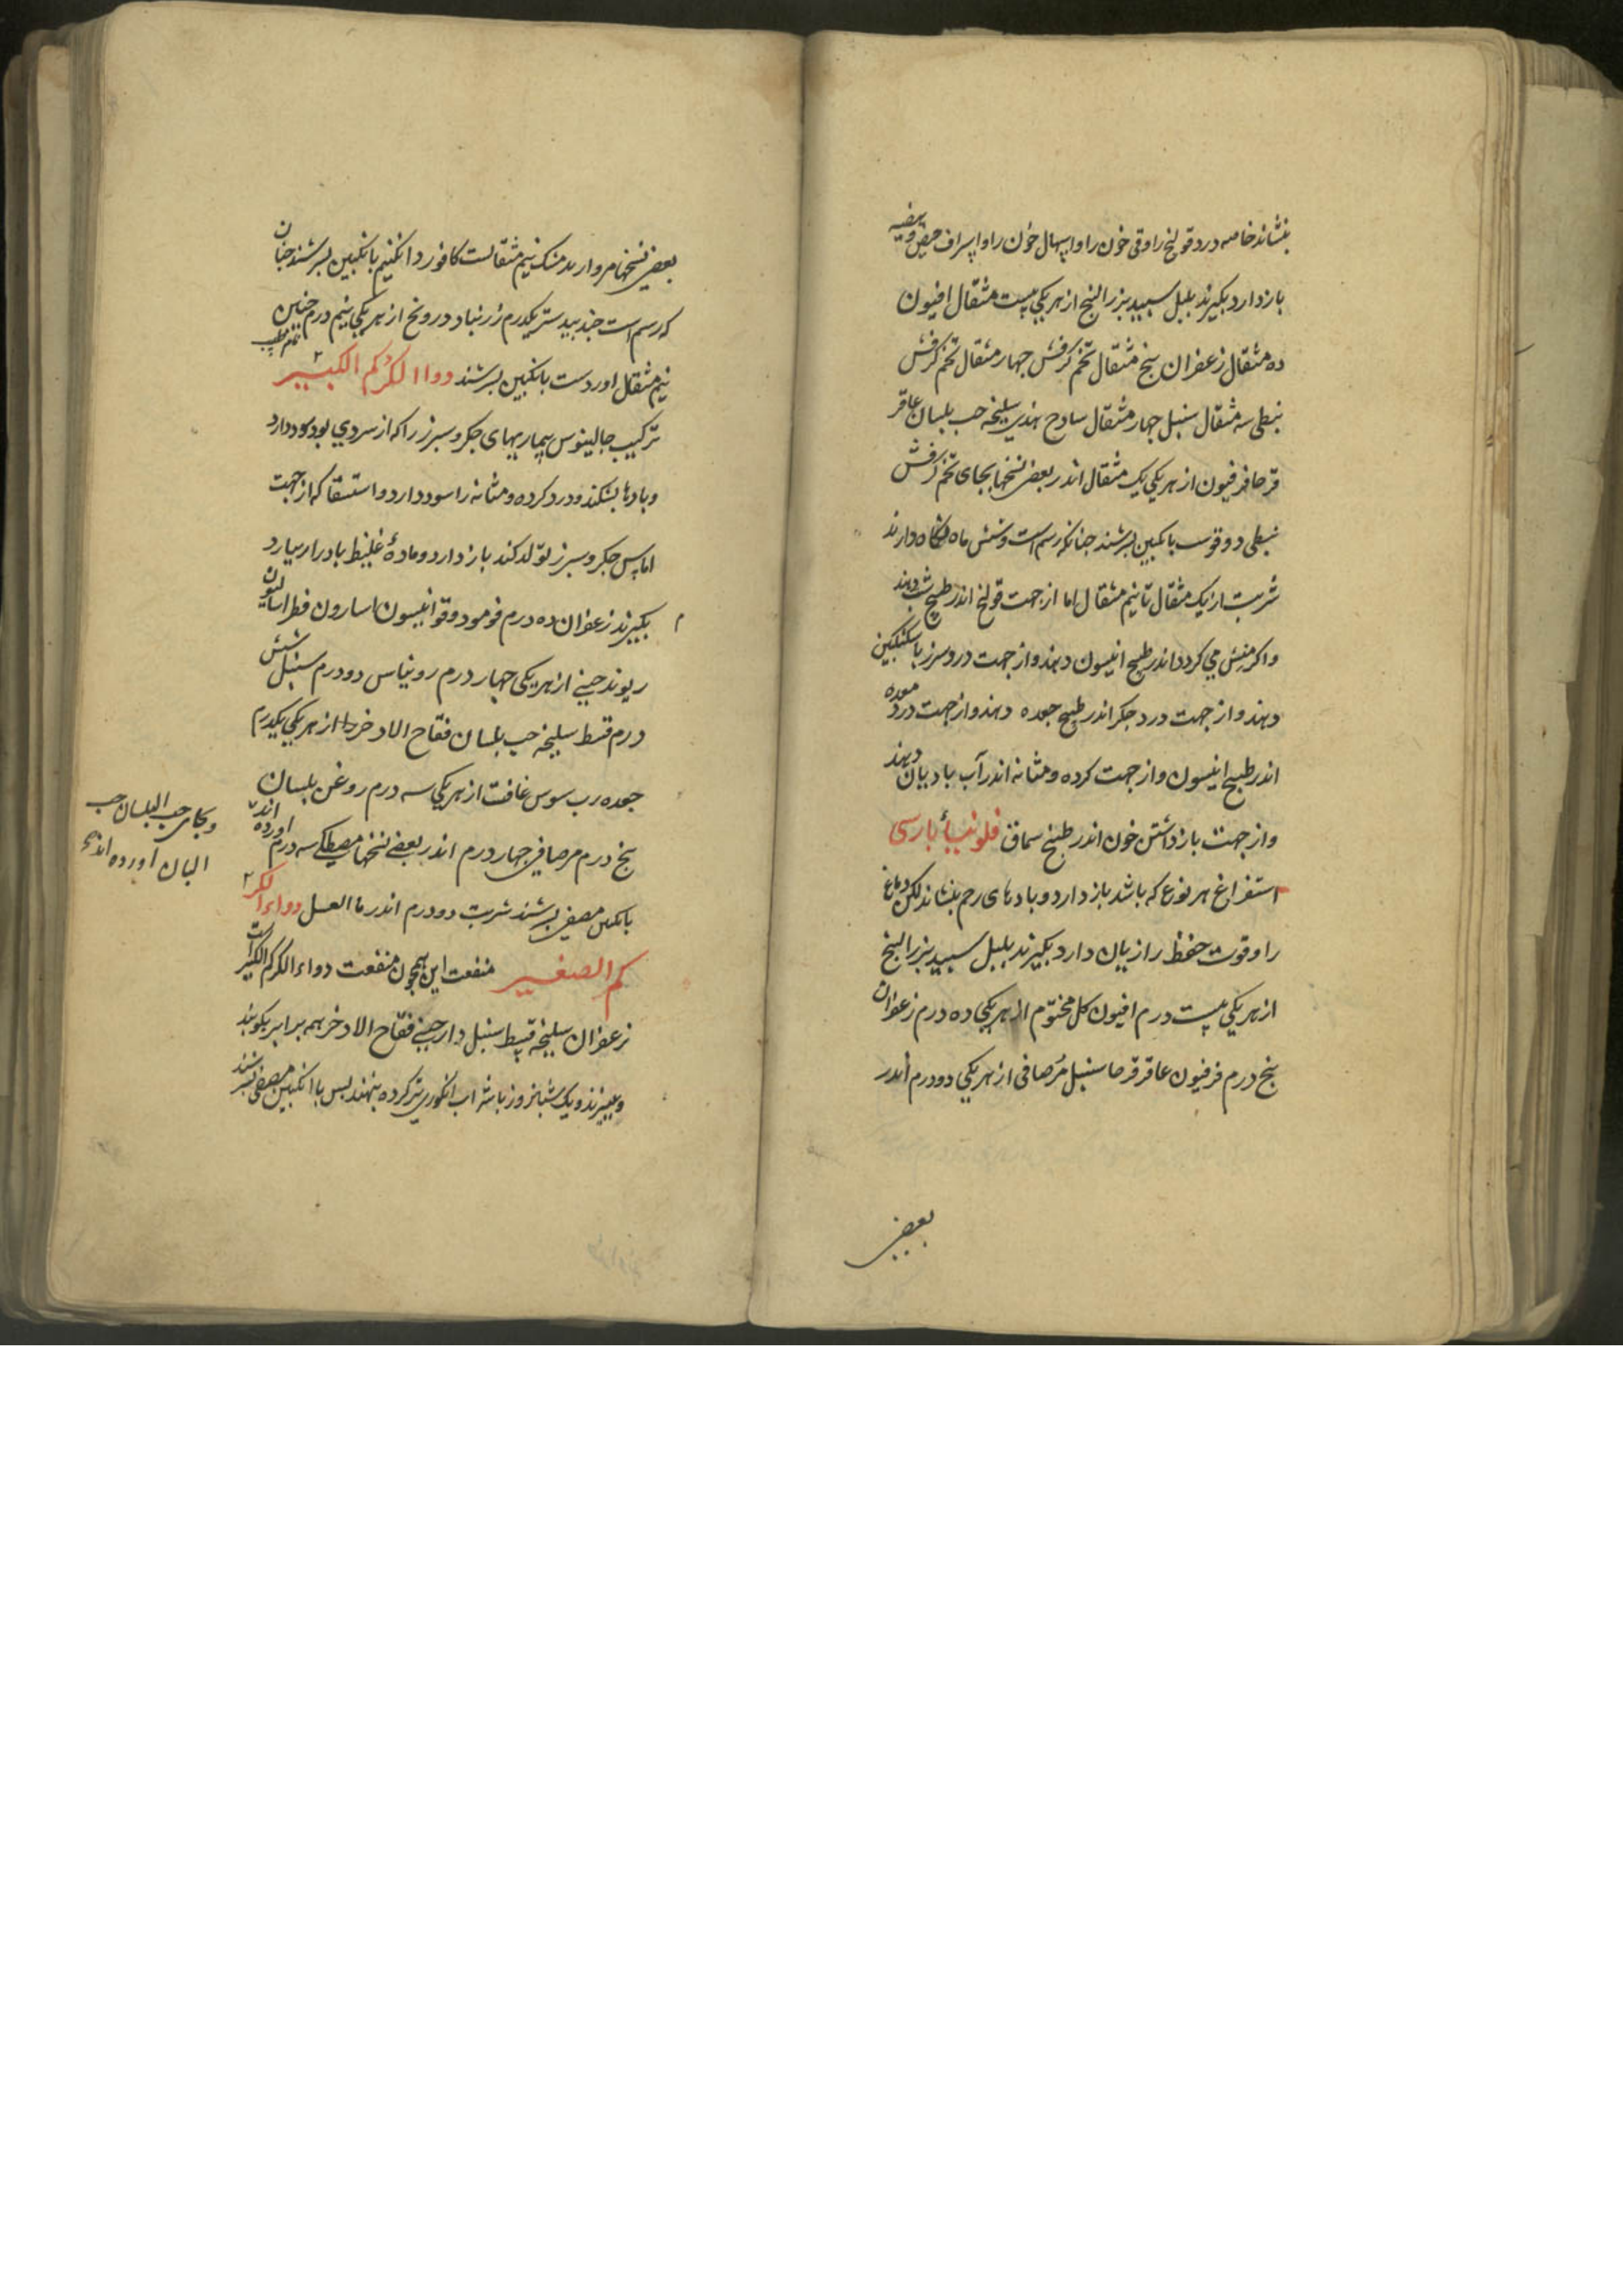 بنشاند خاصه درد قولنج را و قی خون را و اسهال خون را و اسراف حیض و بیضیه
باز دارد بکیرند بلبل سپید بزرالبنج از هریکی بیست مثقال افیون
ده مثقال زعفران پنج مثقال تخم کرفش جهار مثقال تخم کرفش
نبطی سه مثقال سنبل جهار مثقال سادج هندی سلیخه حب بلسان عاقر
قرحا فرفیون از هریکی یک مثقال اندر بعضی نسخها بجای تخم کرفش
نبطی دوقوست بانکبین بسرشند جنانکه رسم است و شش ماه نکاه دارند
شربت از یک مثقال تا نیم مثقال اما از جهت قولنج اندر طبیخ شبت دهند
و اکر منش می کردد اندر طبیخ انیسون دهند و از جهت درد سرز باسکنکبین
دهند و از جهت درد جکر اندر طبیخ جعده دهند و از جهت درد معده
اندر طبیخ انیسون و از جهت کرده و مثانه اندر آب بادیان دهند
و از جهت باز داشتن خون اندر طبیخ سماق فلونیا بارسی
استفراغ هر نوع که باشد باز دارد و بادهای رحم بنشاند لکن دماغ
را و قوت حفظ را زیان دارد بکیرند بلبل سپید بزرالبنج
از هریکی بیست درم افیون کل مختوم از هریکی ده درم زعفران
پنج درم فرفیون عاقرقرحا سنبل مرصافی از هریکی دو درم اندر
بعضی
بعضی نسخها مروارید مشک نیم مثقالست کافور دانکنیم بانکبین بسرشند جنان
که رسم است جندبیدستر یکدرم زرنباد درونج از هریکی نیم درم جنین
نیم مثقال اوردست بانکبین بسرشند دواا الکرکم الکبیر
ترکیب جالینوس بیماریهای جکر و سبرز را که از سردی بود سود دارد
و بادها بشکند و درد کرده و مثانه را سود دارد و استسقا که از جهت
اماس جکر و سبرز تولد کند باز دارد و مادهٔ غلیظ باد را بیارد
بکیرند زعفران ده درم فو مو دوقو انیسون اسارون فطراسالیون
ریوند جینی از هریکی جهار درم روناس دو درم سنبل شش
درم قسط سلیخه حب بلسان فقاح الادخر از هریکی یکدرم
جعده رب سوس غافت از هریکی سه درم روغن بلسان
پنج درم مرصافی جهار درم اندر بعضی نسخها مصطکی سه درم اندر اورده
بانکبین مصفی بسرشند شربت دو درم اندر ماالعسل دواءالکر
کم الصغیر منفعت این همجون منفعت دواءالکرکم الکبیر است
زعفران سلیخه قسط سنبل دارجینی فقاح الادخر همه برابر بکوبند
و ببیزند و یک شبانروز باشراب انکوری تر کرده بنهند بس با انکبین مصفی بسرشند
وبجای حب البلسان حب
البان اورده اند